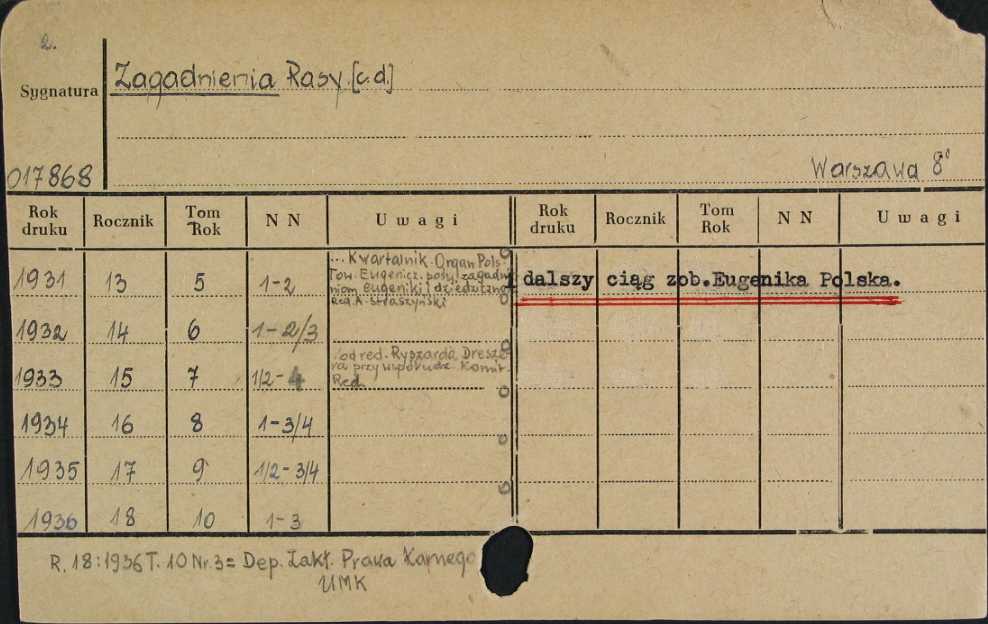 2.
Sygnatura
Zagadnienia Rasy [c.d]
017868
Warszawa 8°
Rok druku Rocznik Tom Rok N N Uwagi Rok druku Rocznik Tom Rok N N Uwagi
1931 13 5 1-2
... Kwartalnik. Organ Pols.
Tow. Eugenicz. pośw. zagadn
niom Eugeniki i dziedziczno
Red. A. Straszyński
dalszy ciąg zob.Eugenika Polska.
1932 14 6 1-2/3
od red. Ryszarda Dresze-
ra przy współudz. Komit.
Red.
1933 15 7 1/2-4
1934 16 8 1-3/4
1935 17 9 1/2-3/4
1936 18 10 1-3
R. 18:1936 T. 10 Nr. 3 = Dep. Zakł. Prawa Karnego
UMK